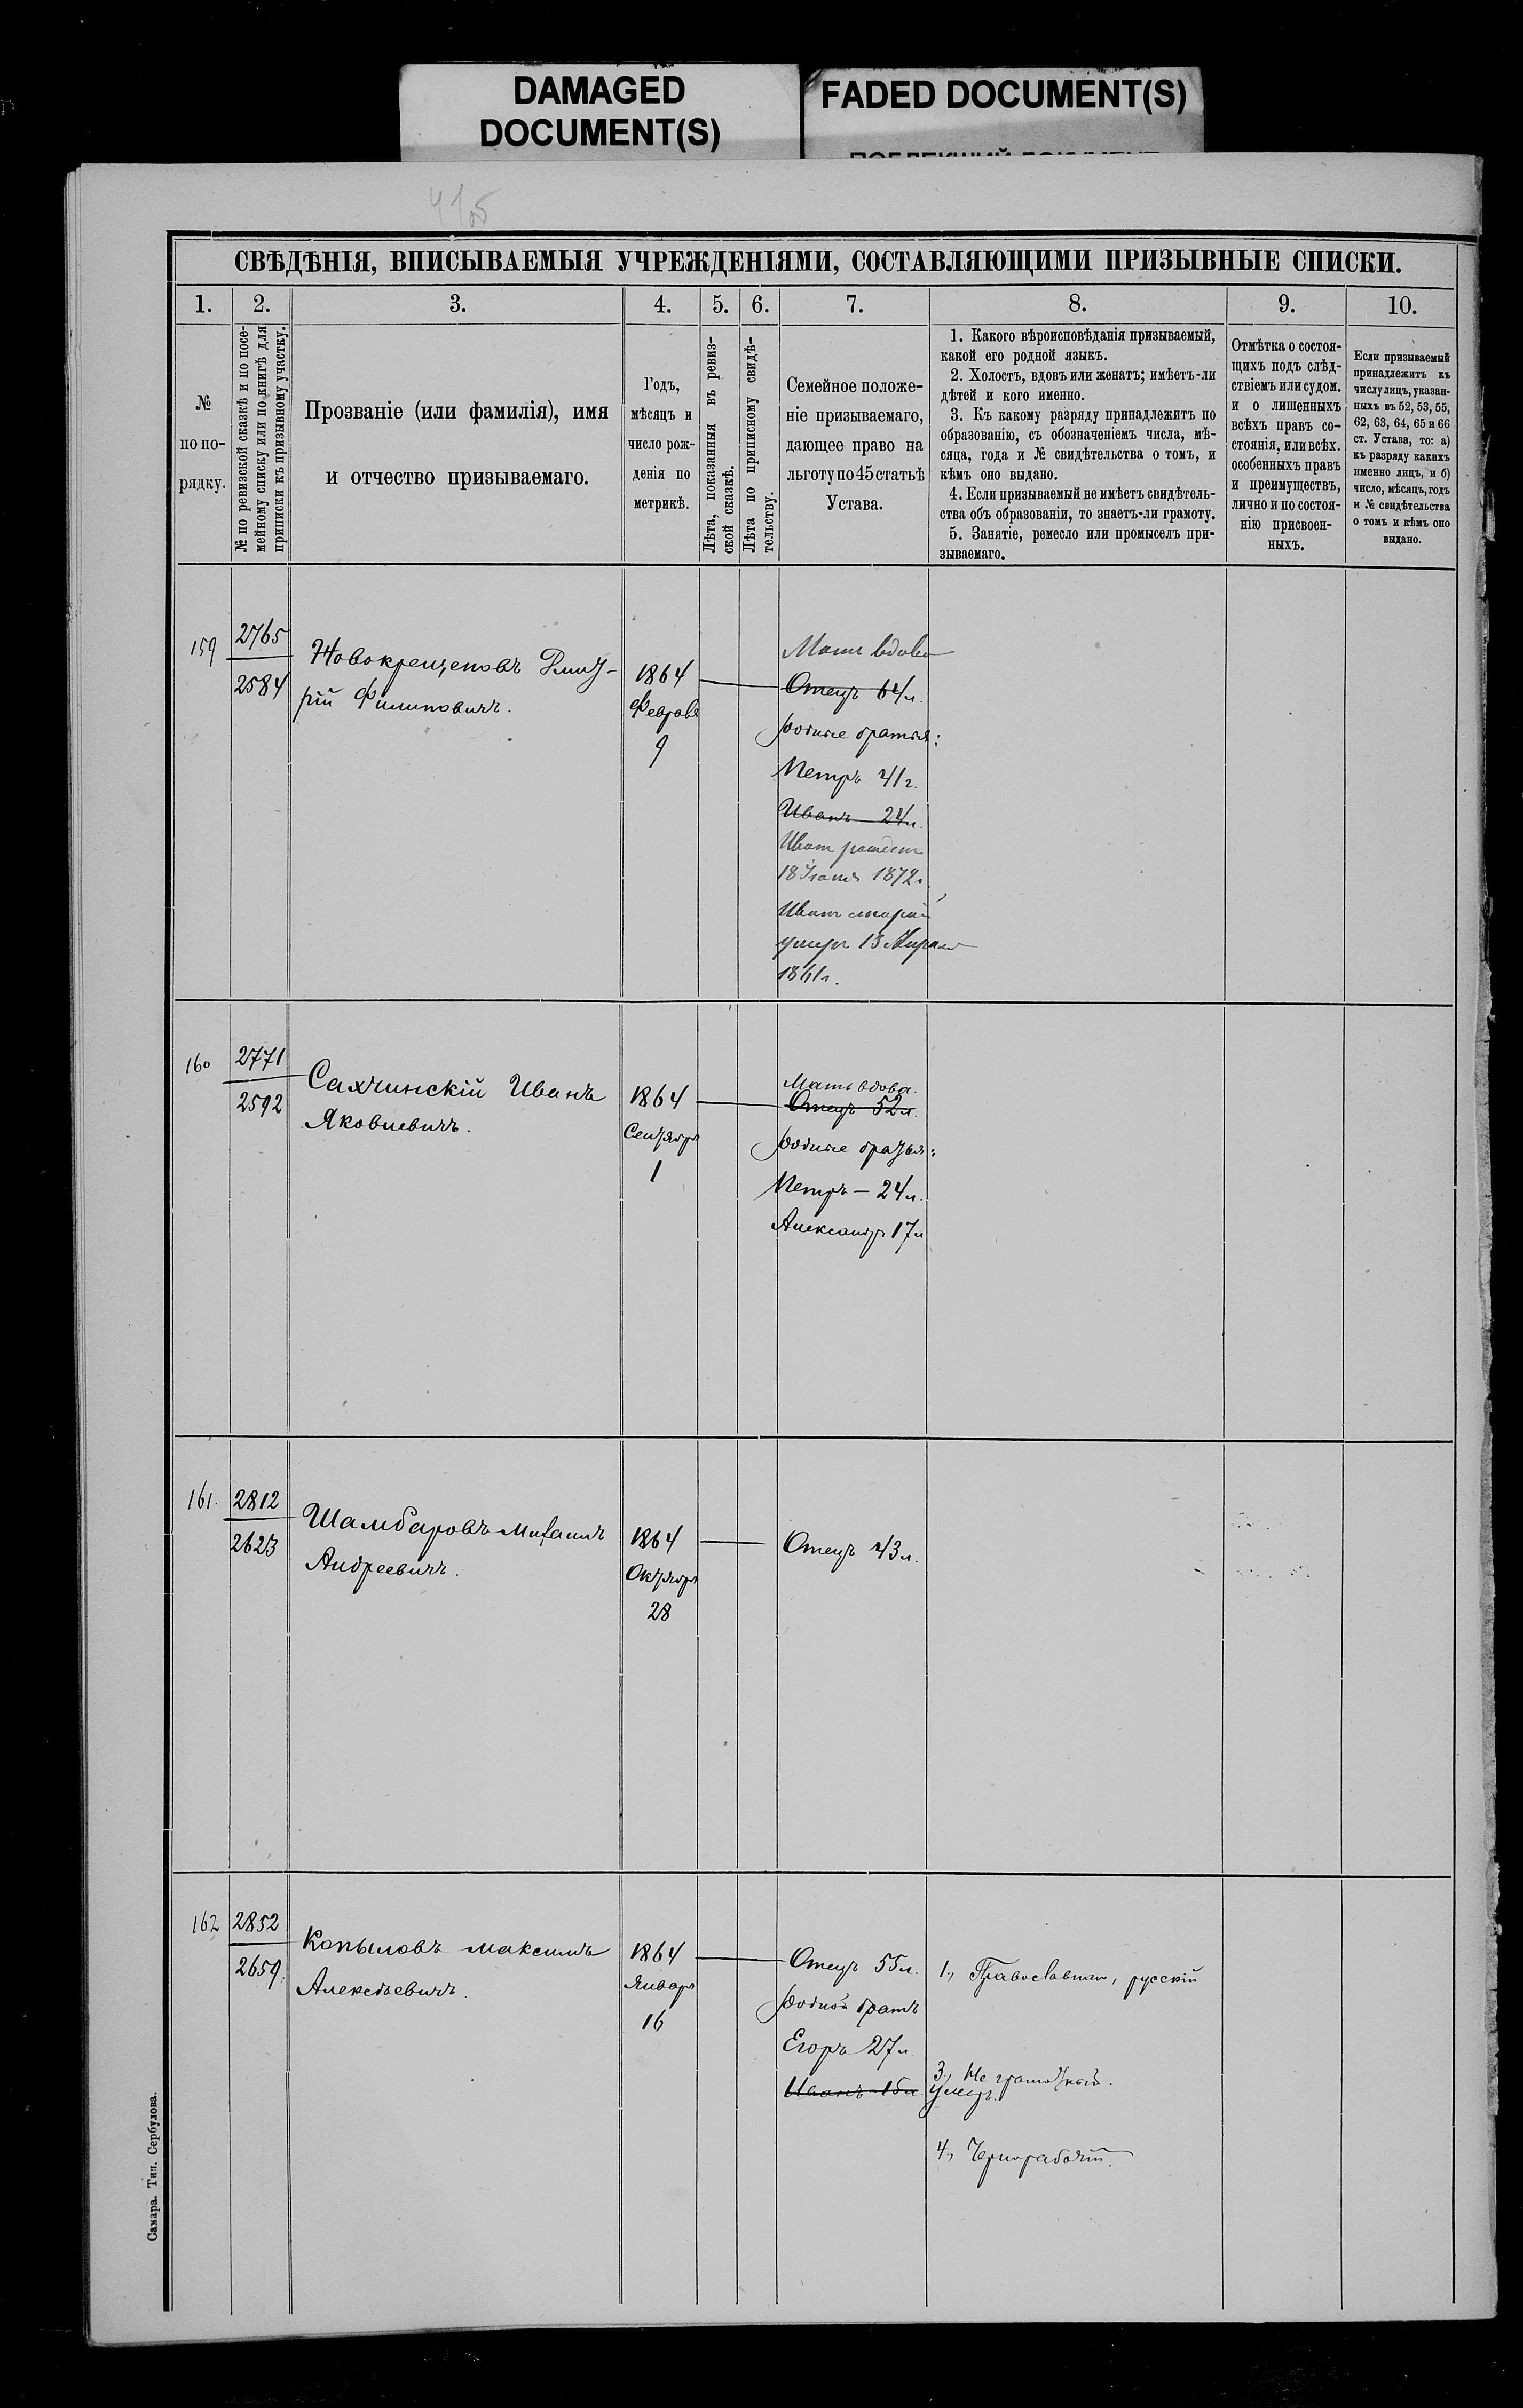 DAMAGED
DOCUMENT(S)
FADED DOCUMENT(S)
СВѢДѢНІЯ, ВПИСЫВАЕМЫЯ УЧРЕЖДЕНІЯМИ, СОСТАВЛЯЮЩИМИ ПРИЗЫВНЫЕ СПИСКИ.
1.
2.
3.
4.
5.
6.
7.
8.
9.
10.
№
по по-
рядку.
№ по ревизской сказкѣ и по посе-
мейному списку или по книгѣ для
приписки къ призывному участку.
Прозваніе (или фамилія), имя
и отчество призываемаго.
Годъ,
мѣсяцъ и
число рож-
денія по
метрикѣ.
Лѣта, показанныя въ ревиз-
ской сказкѣ.
Лѣта по приписному свидѣ-
тельству.
Семейное положе-
ніе призываемаго,
дающее право на
льготу по 45 статьѣ
Устава.
1. Какого вѣроисповѣданія призываемый,
какой его родной языкъ.
2. Холостъ, вдовъ или женатъ; имѣетъ-ли
дѣтей и кого именно.
3. Къ какому разряду принадлежитъ по
образованію, съ обозначеніемъ числа, мѣ-
сяца, года и № свидѣтельства о томъ, и
кѣмъ оно выдано.
4. Если призываемый не имѣетъ свидѣтель-
ства объ образованіи, то знаетъ-ли грамоту.
5. Занятіе, ремесло или промыселъ при-
зываемаго.
Отмѣтка о состоя-
щихъ подъ слѣд-
ствіемъ или судом.
и о лишенныхъ
всѣхъ правъ со-
стоянія, или всѣх.
особенныхъ правъ
и преимуществъ,
лично и по состоя-
нію присвоен-
ныхъ.
Если призываемый
принадлежитъ къ
числу лицъ, указан-
ныхъ въ 52, 53, 55,
62, 63, 64, 65 и 66
ст. Устава, то: а)
къ разряду какихъ
именно лицъ, и б)
число, мѣсяцъ, годъ
и № свидѣтельства
о томъ и кѣмъ оно
выдано.
159
2765
2584
Новокрещеновъ Дмит-
рій Филиповичъ.
1864
Февраля
9
Мать вдова
Отецъ 64 л.
родные братья:
Петръ 41 г.
Иванъ 24 л.
Иванъ
18 1872 г.
Иванъ старій
умеръ 13 Апреля
1861 г.
160
2771
2592
Сахчинскій Иванъ
Яковлевичъ.
1864
Сентябр
1
Мать вдова.
Отецъ 52 л.
родные братья:
Петръ — 24 л.
Александръ 17 л
161.
2812
2623
Шамбаровъ Михаилъ
Андреевичъ.
1864
Октябр
28
Отецъ 43 л.
162
2852
2659.
Копыловъ Максимъ
Алексѣевичъ.
1864
Январ
16
Отецъ 55 л.
родной братъ
Егоръ 27 л
Иванъ 15 л. умеръ.
1, Православный, русскій
3, Не грамотный.
4, Чернорабочій.
Самара. Тип. Сербулова.